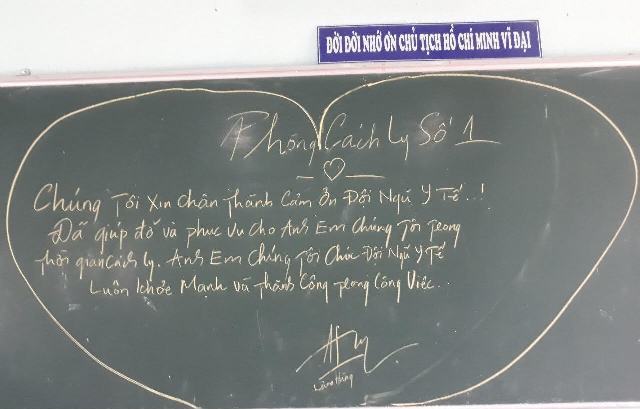 ĐỜI ĐỜI NHỚ ƠN CHỦ TỊCH HỒ CHÍ MINH VĨ ĐẠI
Phòng Cách Ly Số 1
Chúng Tôi Xin Chân Thành Cảm Ơn Đội Ngũ Y Tế...!
Đã giúp đỡ và phục vụ cho Anh Em Chúng Tôi trong
thời gian cách ly. Anh Em Chúng Tôi Chúc Đội Ngũ Y Tế
Luôn khỏe Mạnh và thành Công trong Công Việc..